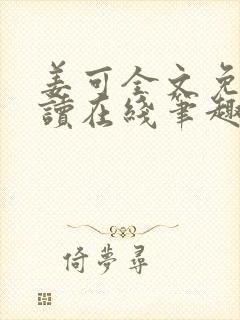 姜可全文免
讀在綫筆趣
倚夢尋